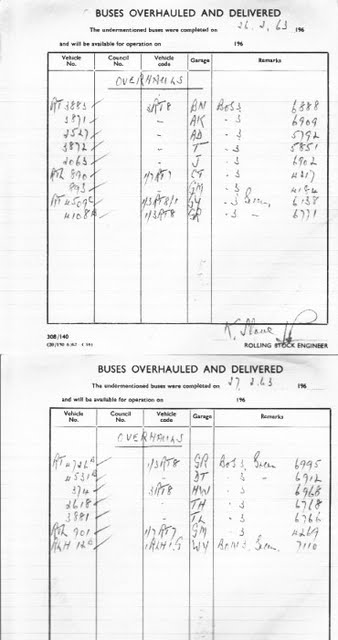 BUSES OVERHAULED AND DELIVERED
The undermentioned buses were completed on 26.2.63 196
and will be available for operation on 196
Vehicle No. Council No. Vehicle code Garage Remarks
OVERHAULS
RT 3883 3RT8 BN BoS3 6888
3871 - AK - 3 6909
2527 - AD - 3 5792
3872 - T - 3 5851
2063 - J - 3 6902
RTL 890 1/7RT7 CT - 3 4217
893 - GM - 3
RT 4509 1/3RT8/1 GY - 3 Green 6138
4108 1/3RT8 GR - 3 " 6771
308/140
ROLLING STOCK ENGINEER
BUSES OVERHAULED AND DELIVERED
The undermentioned buses were completed on 27.2.63 196
and will be available for operation on 196
Vehicle No. Council No. Vehicle code Garage Remarks
OVERHAULS
RT 4726 1/3RT8 GR BoS3 Green 6995
4531 - DT - " 6912
374 3RT8 HW - 3 6968
2618 - TH - 3 6768
3881 - TL - 3 6766
RTL 901 1/7RT7 GM - 3 4269
RLH 12 1RLH1/G WY Green 7110